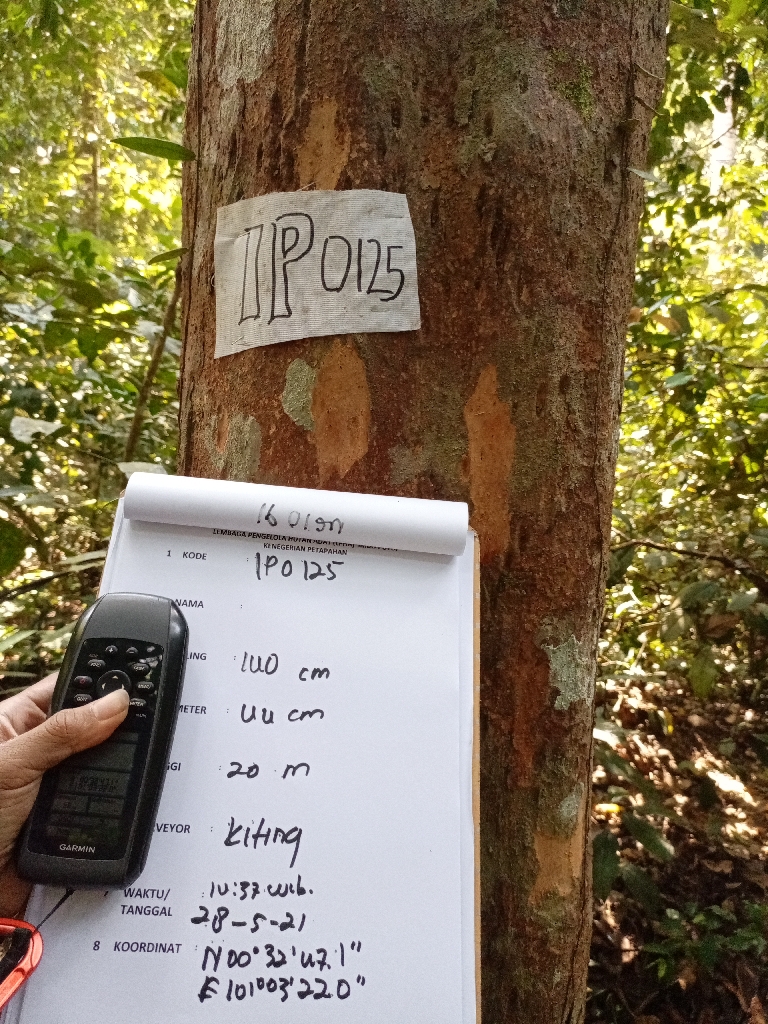 IP0125
LEMBAGA PENGELOLA HUTAN ADAT (LPHA)
KENEGERIAN PETAPAHAN
1 KODE : IP0125
NAMA :
LING : 140 cm
METER : 44 cm
GGI : 20 m
VEYOR : kiting
7 WAKTU/ : 14:37 wib.
TANGGAL 28-5-21
8 KOORDINAT : N00°32'47.1"
E101°03'22.0"
GARMIN